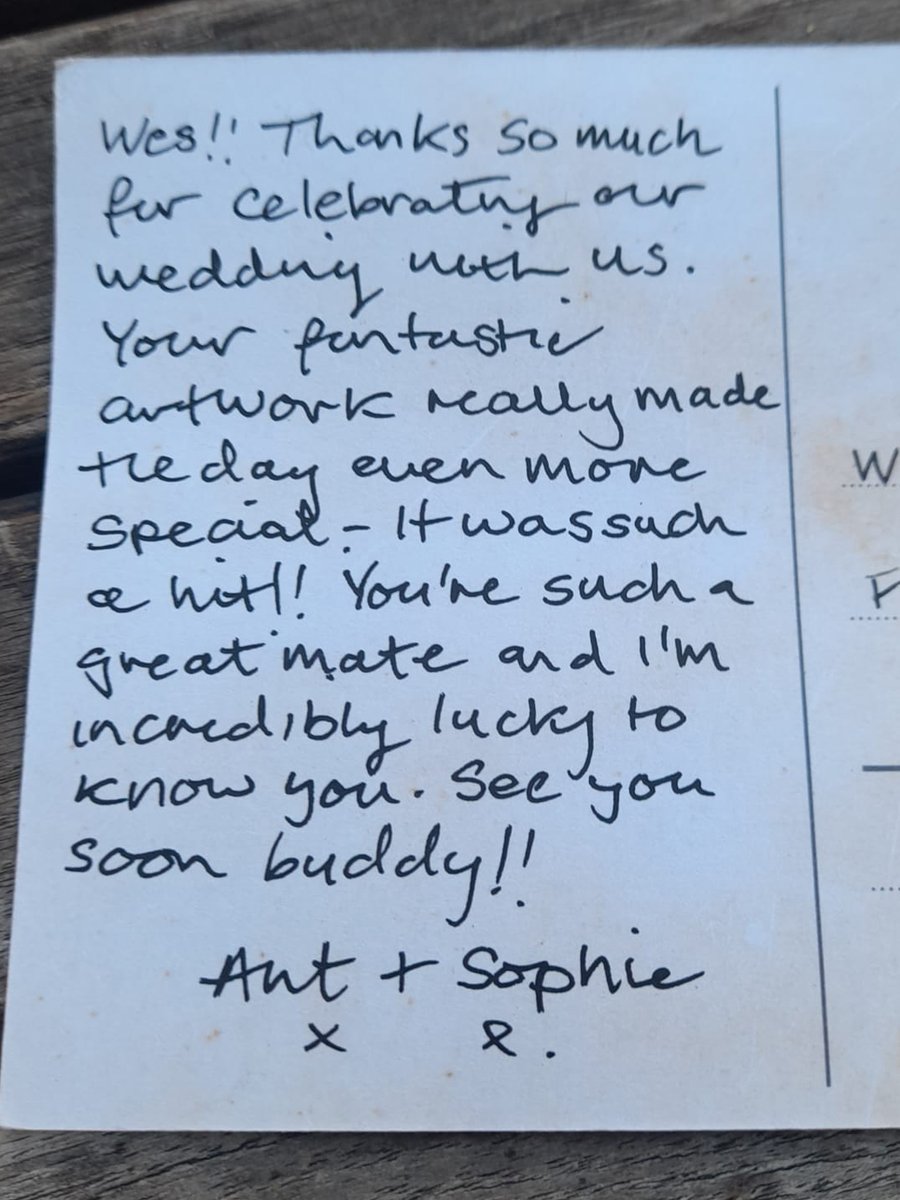 Wes!! Thanks so much
for celebrating our
wedding with us.
Your fantastic
artwork really made
the day even more
special - It was such
a hit!! You're such a
great mate and I'm
incredibly lucky to
know you. See you
soon buddy!!
Ant + Sophie
x x.
W
F